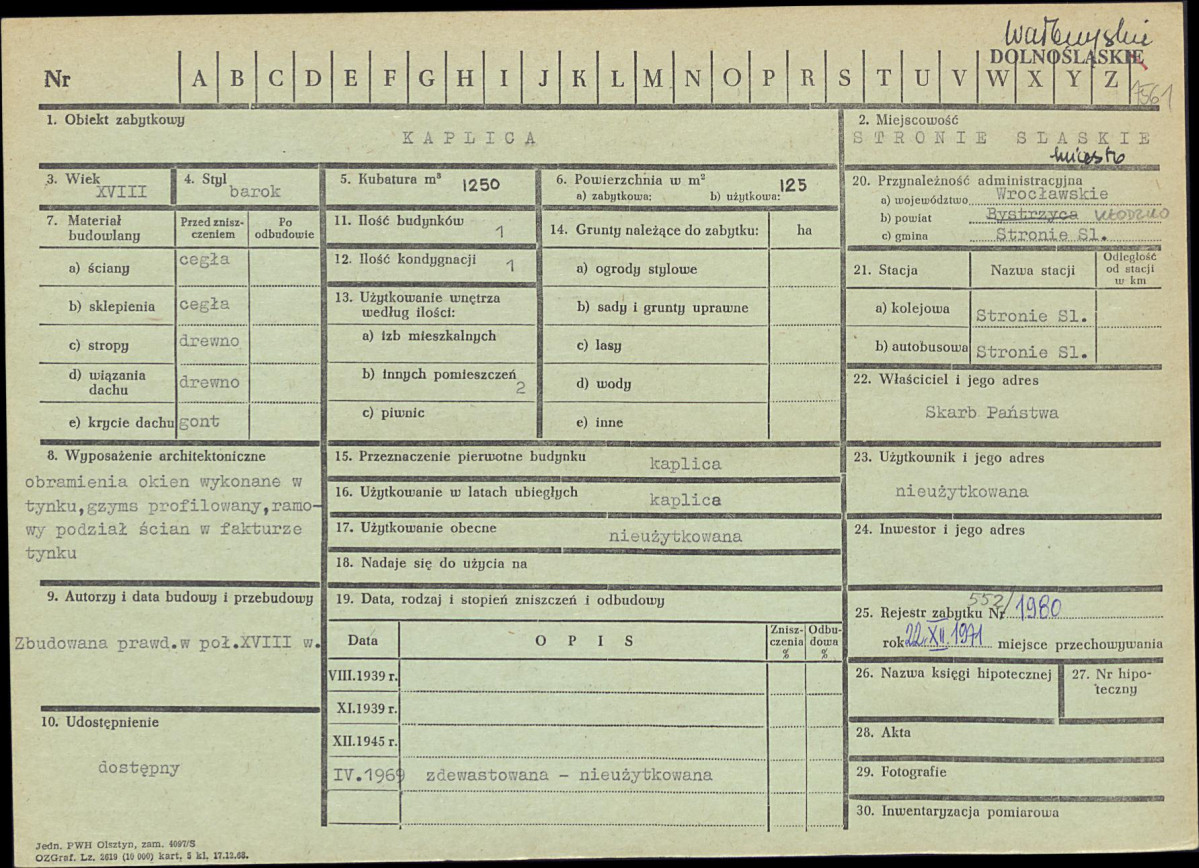 Wałbrzyskie
DOLNOŚLĄSKIE
Nr A B C D E F G H I J K L M N O P R S T U V W X Y Z
1. Obiekt zabytkowy
KAPLICA
2. Miejscowość
STRONIE SLASKIE
miasto
3. Wiek
XVIII
4. Styl
barok
5. Kubatura m³ 1250
6. Powierzchnia w m² 125
a) zabytkowa: b) użytkowa:
7. Materiał budowlany
Przed zniszczeniem
Po odbudowie
a) ściany cegła
b) sklepienia cegła
c) stropy drewno
d) wiązania dachu drewno
e) krycie dachu gont
8. Wyposażenie architektoniczne
obramienia okien wykonane w
tynku,gzyms profilowany,ramo-
wy podział ścian w fakturze
tynku
9. Autorzy i data budowy i przebudowy
Zbudowana prawd.w poł.XVIII w.
10. Udostępnienie
dostępny
11. Ilość budynków 1
12. Ilość kondygnacji 1
13. Użytkowanie wnętrza
według ilości:
a) izb mieszkalnych
b) innych pomieszczeń 2
c) piwnic
14. Grunty należące do zabytku: ha
a) ogrody stylowe
b) sady i grunty uprawne
c) lasy
d) wody
e) inne
15. Przeznaczenie pierwotne budynku kaplica
16. Użytkowanie w latach ubiegłych kaplica
17. Użytkowanie obecne nieużytkowana
18. Nadaje się do użycia na
19. Data, rodzaj i stopień zniszczeń i odbudowy
Data OPIS Zniszczenia % Odbudowa %
VIII.1939 r.
XI.1939 r.
XII.1945 r.
IV.1969 zdewastowana - nieużytkowana
20. Przynależność administracyjna
a) województwo Wrocławskie
b) powiat Bystrzyca KŁODZKO
c) gmina Stronie Sl.
21. Stacja Nazwa stacji Odległość od stacji w km
a) kolejowa Stronie Sl.
b) autobusowa Stronie Sl.
22. Właściciel i jego adres
Skarb Państwa
23. Użytkownik i jego adres
nieużytkowana
24. Inwestor i jego adres
25. Rejestr zabytku Nr 552/1980
rok 22.XII.1971 miejsce przechowywania
26. Nazwa księgi hipotecznej
27. Nr hipoteczny
28. Akta
29. Fotografie
30. Inwentaryzacja pomiarowa
Jedn. PWH Olsztyn, zam. 4097/S
OZGraf. Lz. 2619 (10 000) kart. 5 kl. 17.12.68.